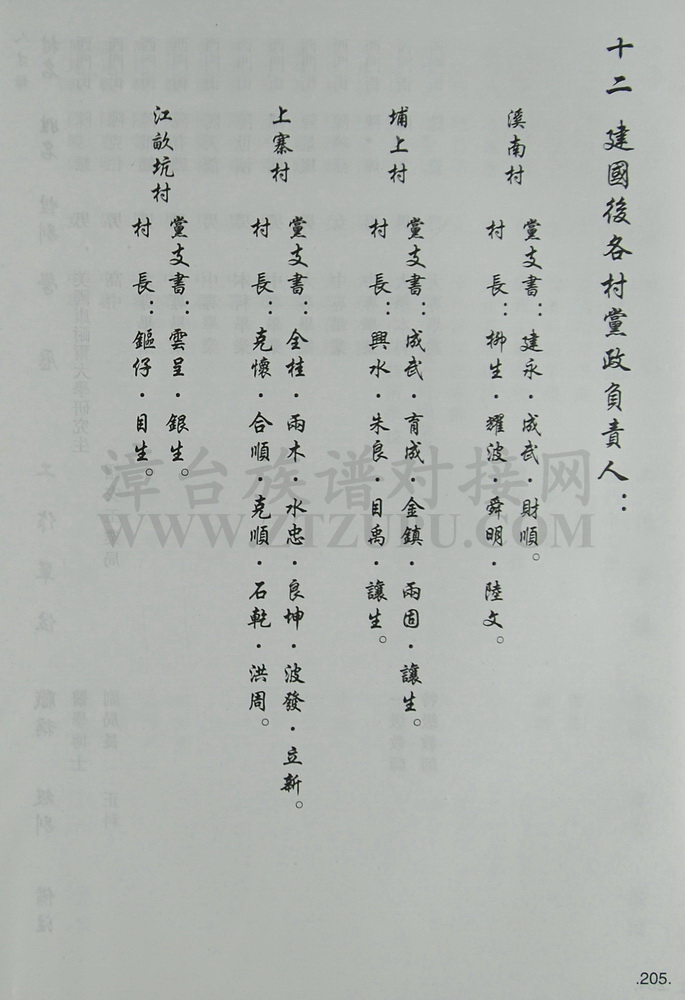 十二 建國後各村黨政負責人：
溪南村
黨支書：建永·成武·財順。
村 長：柳生·耀波·舜明·陸文。
埔上村
黨支書：成武·育成·金鎮·雨固·讓生。
村 長：興水·朱良·目禹·讓生。
上寨村
黨支書：全桂·雨木·水忠·良坤·波發·立新。
村 長：克懷·合順·克順·石乾·洪周。
江畝坑村
黨支書：雲呈·銀生。
村 長：鏂仔·目生。
漳台族谱对接网
WWW.ZTZUPU.COM
.205.